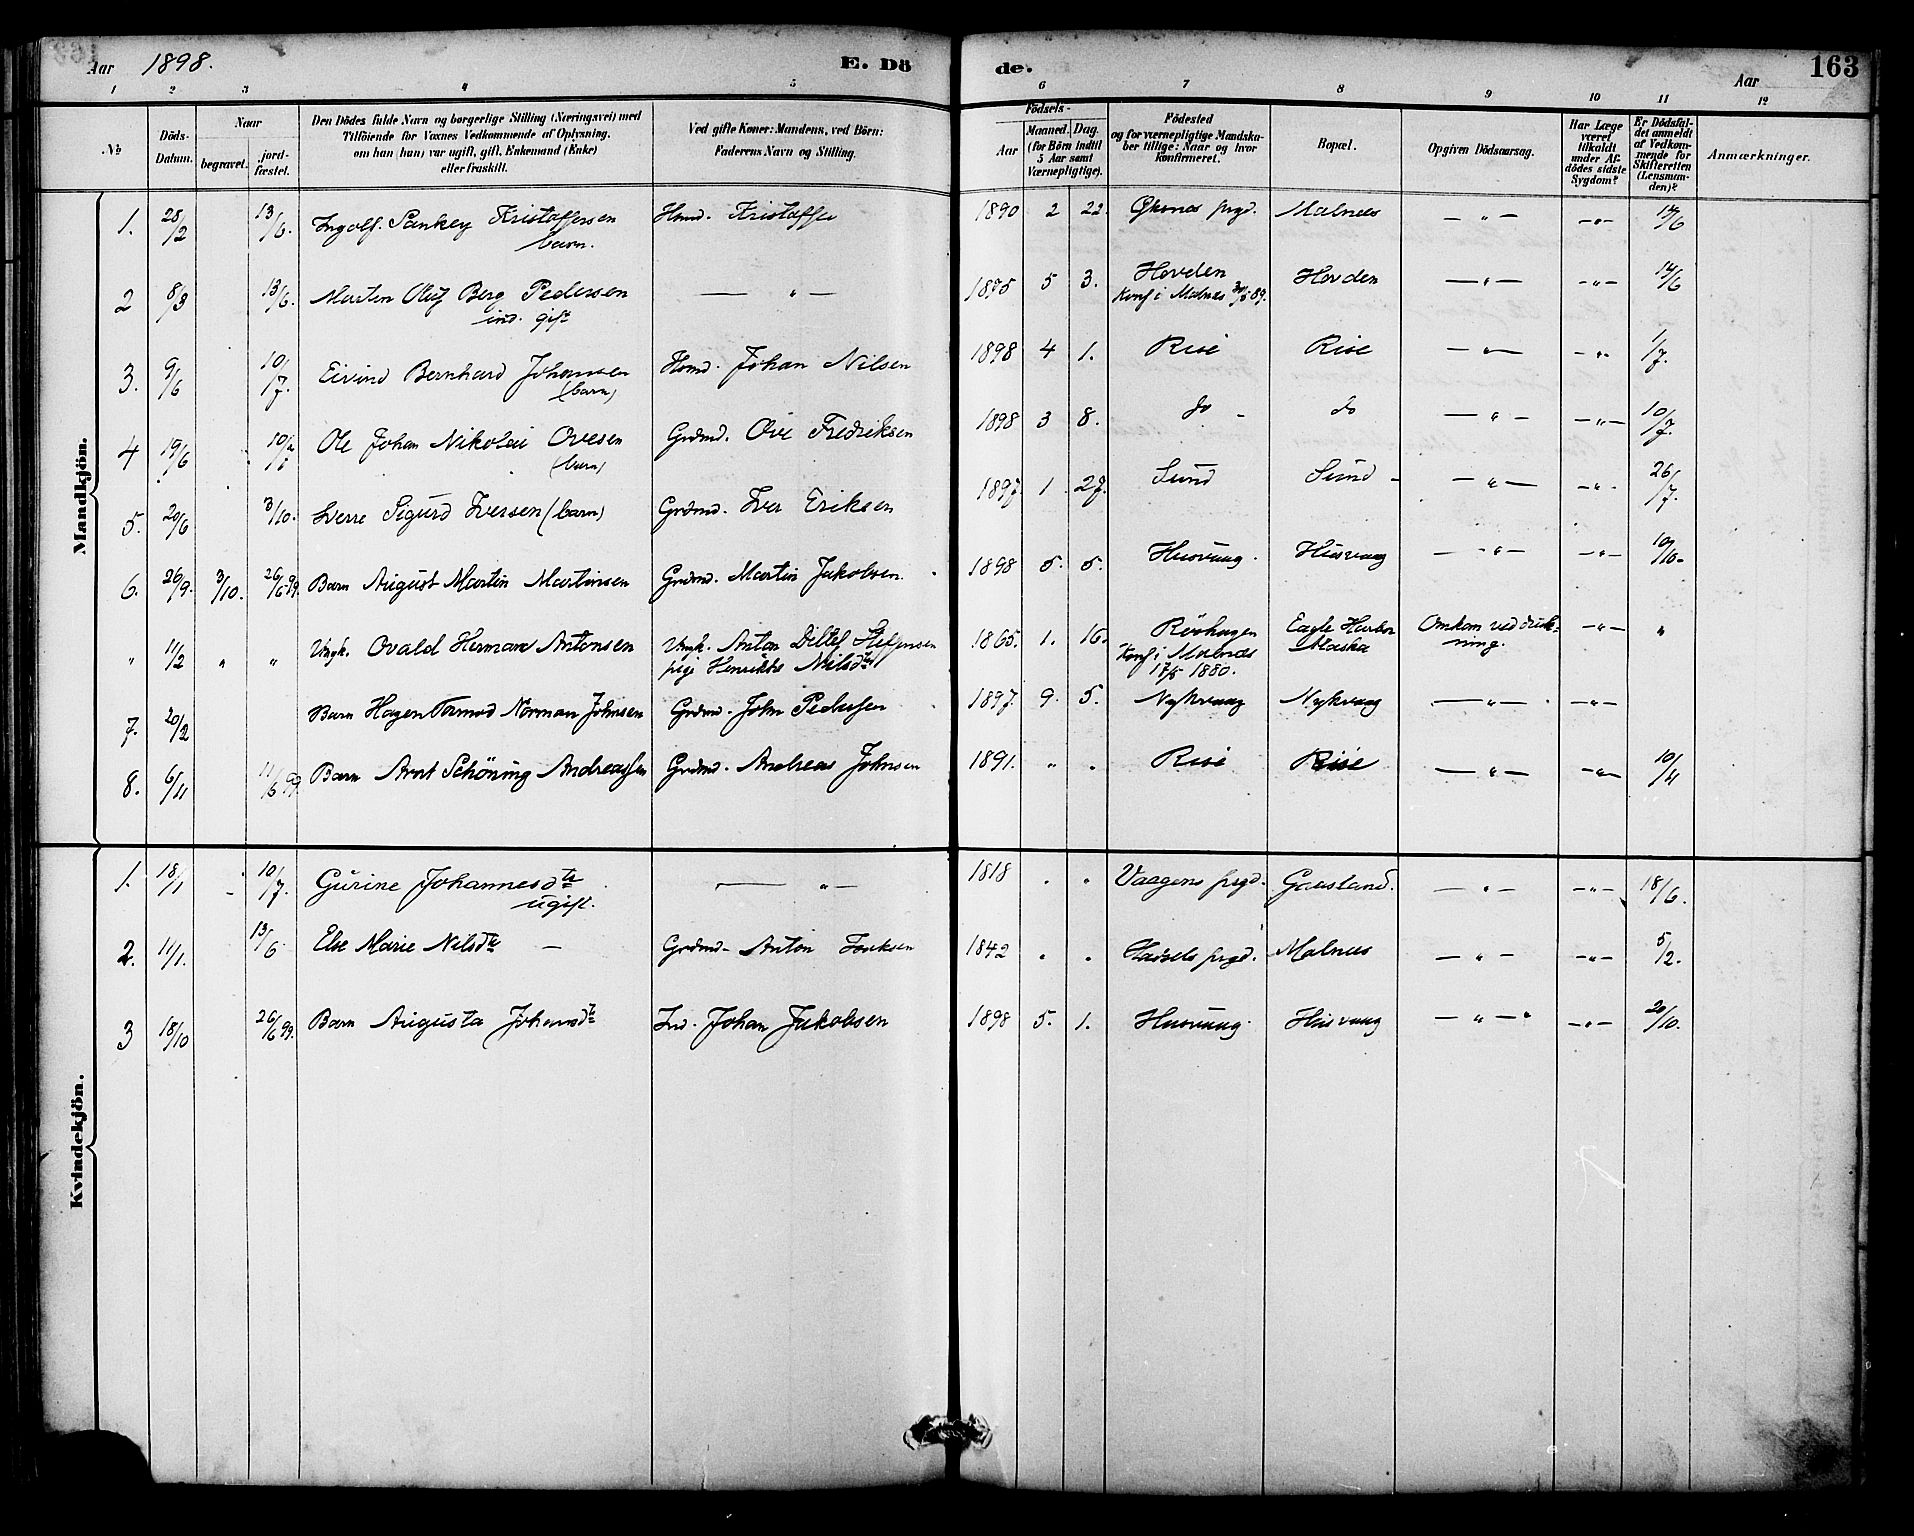 Aar 1898. E. Dö de. Aar 163
1 2 3 4 5 6 7 8 9 10 11 12
№
Döds-Datum.
Naar
begravet.
jord-fæstet.
Den Dödes fulde Navn og borgerlige Stilling (Næringsvei) med
Tilföiende for Voxnes Vedkommende af Oplysning,
om han (hun) var ugift, gift, Enkemand (Enke)
eller fraskilt.
Ved gifte Koner: Mandens, ved Börn:
Faderens Navn og Stilling.
Födsels-
Aar Maaned. Dag.
(for Börn indtil
5 Aar samt
Værnepligtige).
Födested
og for værnepligtige Mandska-
ber tillige: Naar og hvor
konfirmeret.
Bopæl.
Opgiven Dödsaarsag.
Har Læge
været
tilkaldt
under Af-
dödes sidste
Sygdom?
Er Dödsfal-
det anmeldt
af Vedkom-
mende for
Skifteretten
(Lensman-
den)?
Anmærkninger.
Mandkjön.
1. 28/2 13/6. Ingolf. Sankey Kristoffersen Hmd. Kristoffer 1890 2 22. Øksnes prgd. Malnes — " — —"— 14/6
barn.
2 8/3 13/6. Morten Oluf Berg Pedersen — " — 1875 5 3. Hovden Hovden — " — —"— 14/6
ind. gift Konf i Malnes 89.
3. 9/6 10/7. Eivind Bernhard Johansen Hmd. Johan Nilsen 1898 4 1. Rise Rise — " — —"— 1/7.
(barn)
4 19/6 Ole Johan Nikolai Ovesen Grdmd. Ove Fredriksen 1898 3 8. do - do — " — —"— 10/7.
(barn)
5. 20/6 3/10. Sverre Sigurd Iversen (barn) Grdmd. Iver Eriksen 1897. 1 27. Sund Sund — " — —"— 26/7.
6. 26/9. 3/10. 26/6 99. Barn August Martin Martinsen Grdmd. Martin Jakobsen. 1898 5. 5. Husvaag. Husvaag — " — —"— 10/10.
" 11/2 " " Ungk. Ovald Herman Antonsen Ungk. Anton Ditlef Steffensen 1865. 1. 16. Eagle Harbor Omkom ved druk- —"— "
pige Henrikke Nilsdtr Konf i Malnes Alaska ning.
1880.
7. 20/2 Barn Hagen Tormod Norman Johnsen Grdmd. John Pedersen 1897. 9. 5. Nykvaag Nykvaag — " — —"—
8. 6/11 11/6 99. Barn Arnt Schöning Andreassen Grdmd. Andreas Johnsen 1891. " " Rise Rise — " — —"— 10/11
Kvindekjön.
1. 18/1 10/7. Gurine Johannesdtr — " — 1818 " " Vaagens prgd. Gaasland. — " — —"— 18/6.
ugift.
2. 11/1. 13/6 Else Marie Nilsdtr — Grdmd. Anton 1842 " " prgd. Malnes — " — —"— 5/2.
3 18/10 26/6 99. Barn Augusta Johansdtr Ind. Johan Jakobsen 1898 5. 1. Husvaag. Husvaag — " — " —"— 20/10.